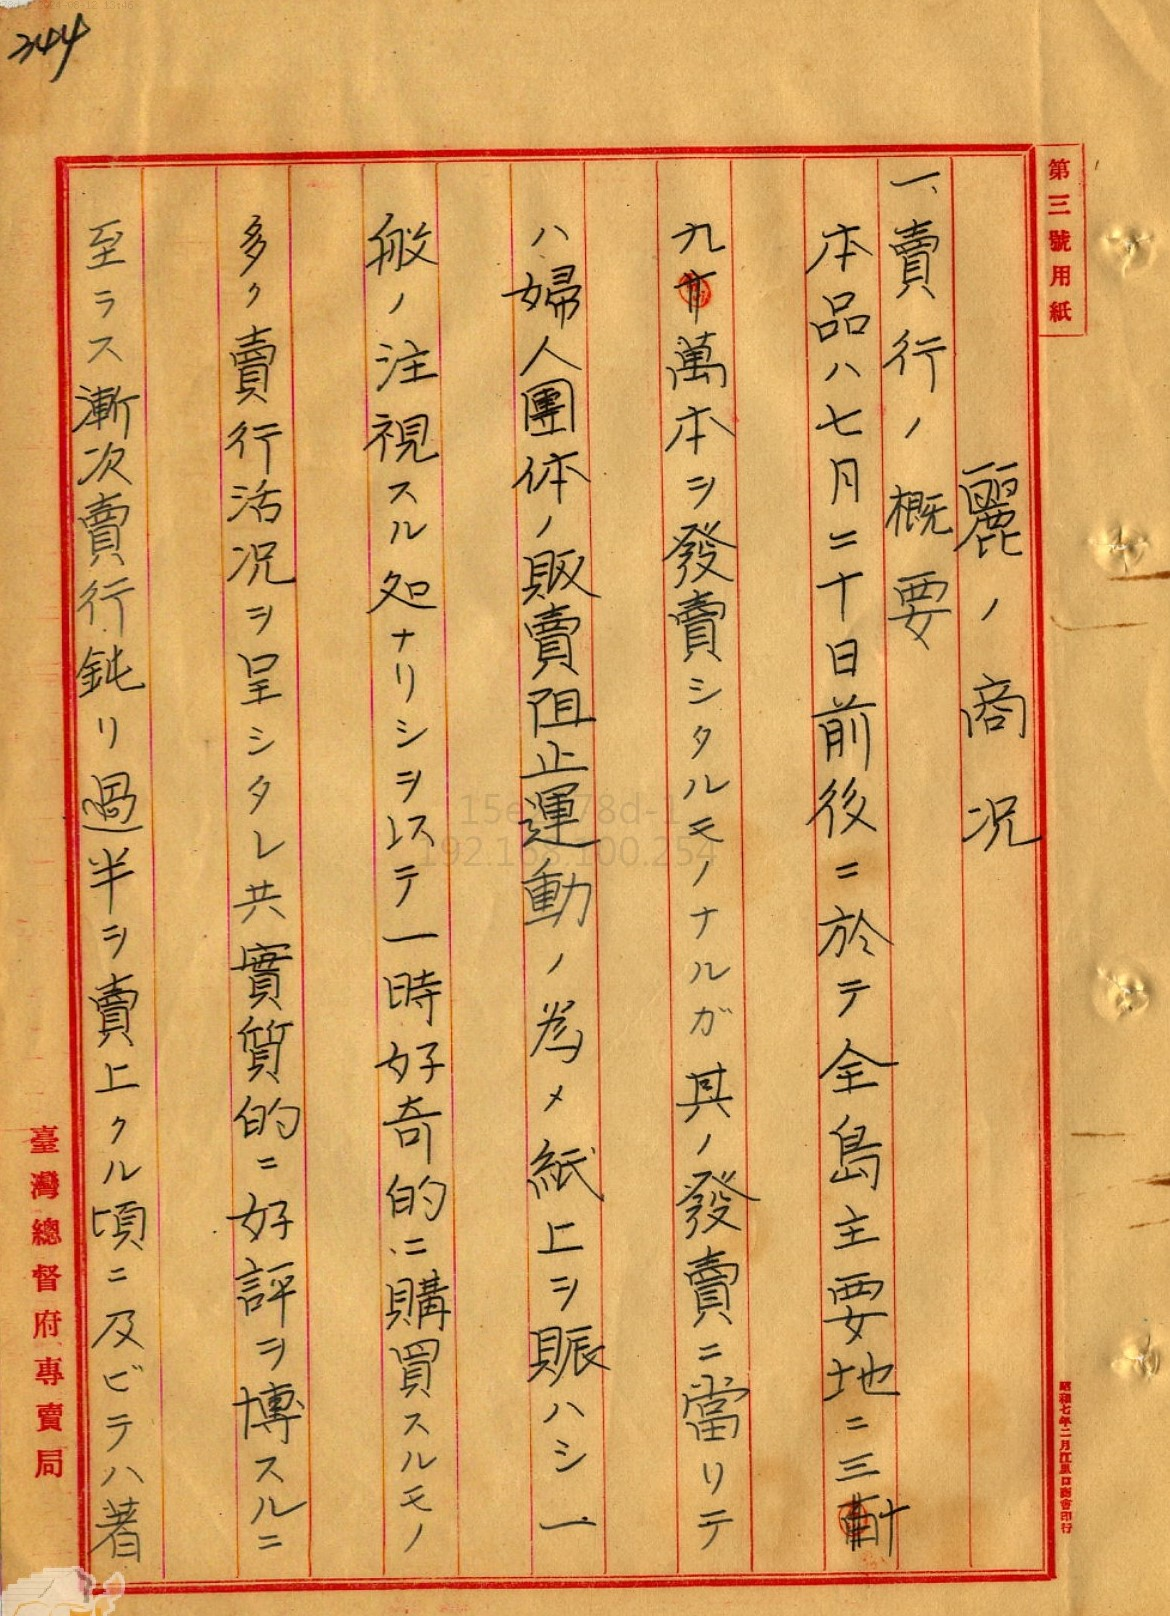 344
第三號用紙
麗ノ商況
一、賣行ノ概要
本品ハ七月二十日前後ニ於テ全島主要地ニ三
九 萬本ヲ發賣シタルモノナルガ其ノ發賣ニ當リテ
ハ婦人團体ノ販賣阻止運動ノ為メ紙上ヲ賑ハシ一
般ノ注視スル処ナリシヲ以テ一時好奇的ニ購買スルモノ
多ク賣行活況ヲ呈シタレ共實質的ニ好評ヲ博スルニ
至ラス漸次賣行鈍リ過半ヲ賣上クル頃ニ及ビテハ著
臺灣總督府專賣局
昭和七年二月江里口商會印行
192.168.100.254